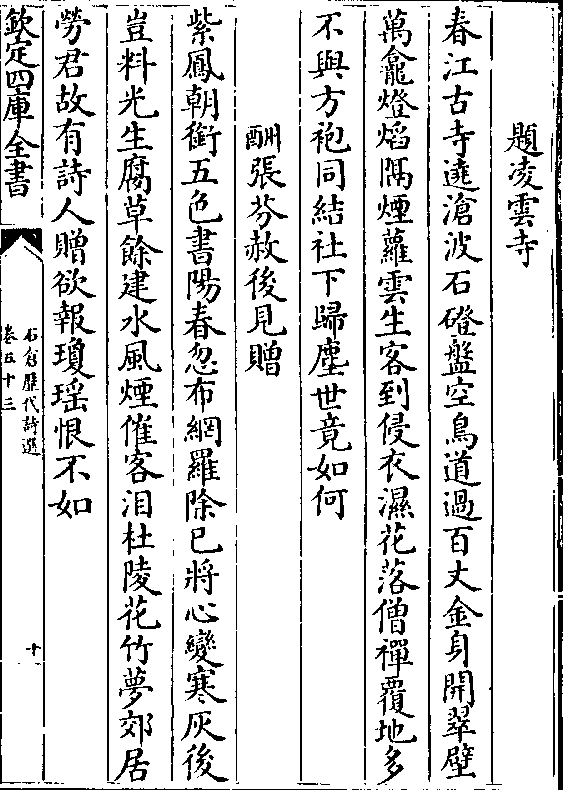 題凌雲寺
春江古寺遶滄波石磴盤空鳥道過百丈金身開翠壁
萬龕燈焰隔煙蘿雲生客到侵衣濕花落僧禪覆地多
不與方袍同結社下歸塵世竟如何
酬張芬赦後見贈
紫鳳朝銜五色書陽春忽布網羅除已將心變寒灰後
豈料光生腐草餘建水風煙催客泪杜陵花竹夢郊居
勞君故有詩人贈欲報瓊瑤恨不如
欽定四庫全書
石倉歷代詩選
卷五十三
十